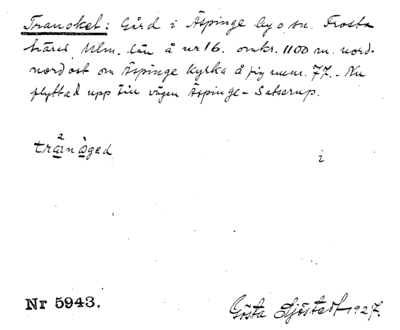 Tranoket: Gård i Äspinge by o. sn. Frosta
härad, Mlm. län å nr 16. omkr. 1100 m. nord-
nordost om Äspinge kyrka å fig. num. 77. - Nu
flyttad upp till vägen Äspinge - Satserup.
tra²inåged i
Nr 5943. Gösta Sjöstedt 1927.